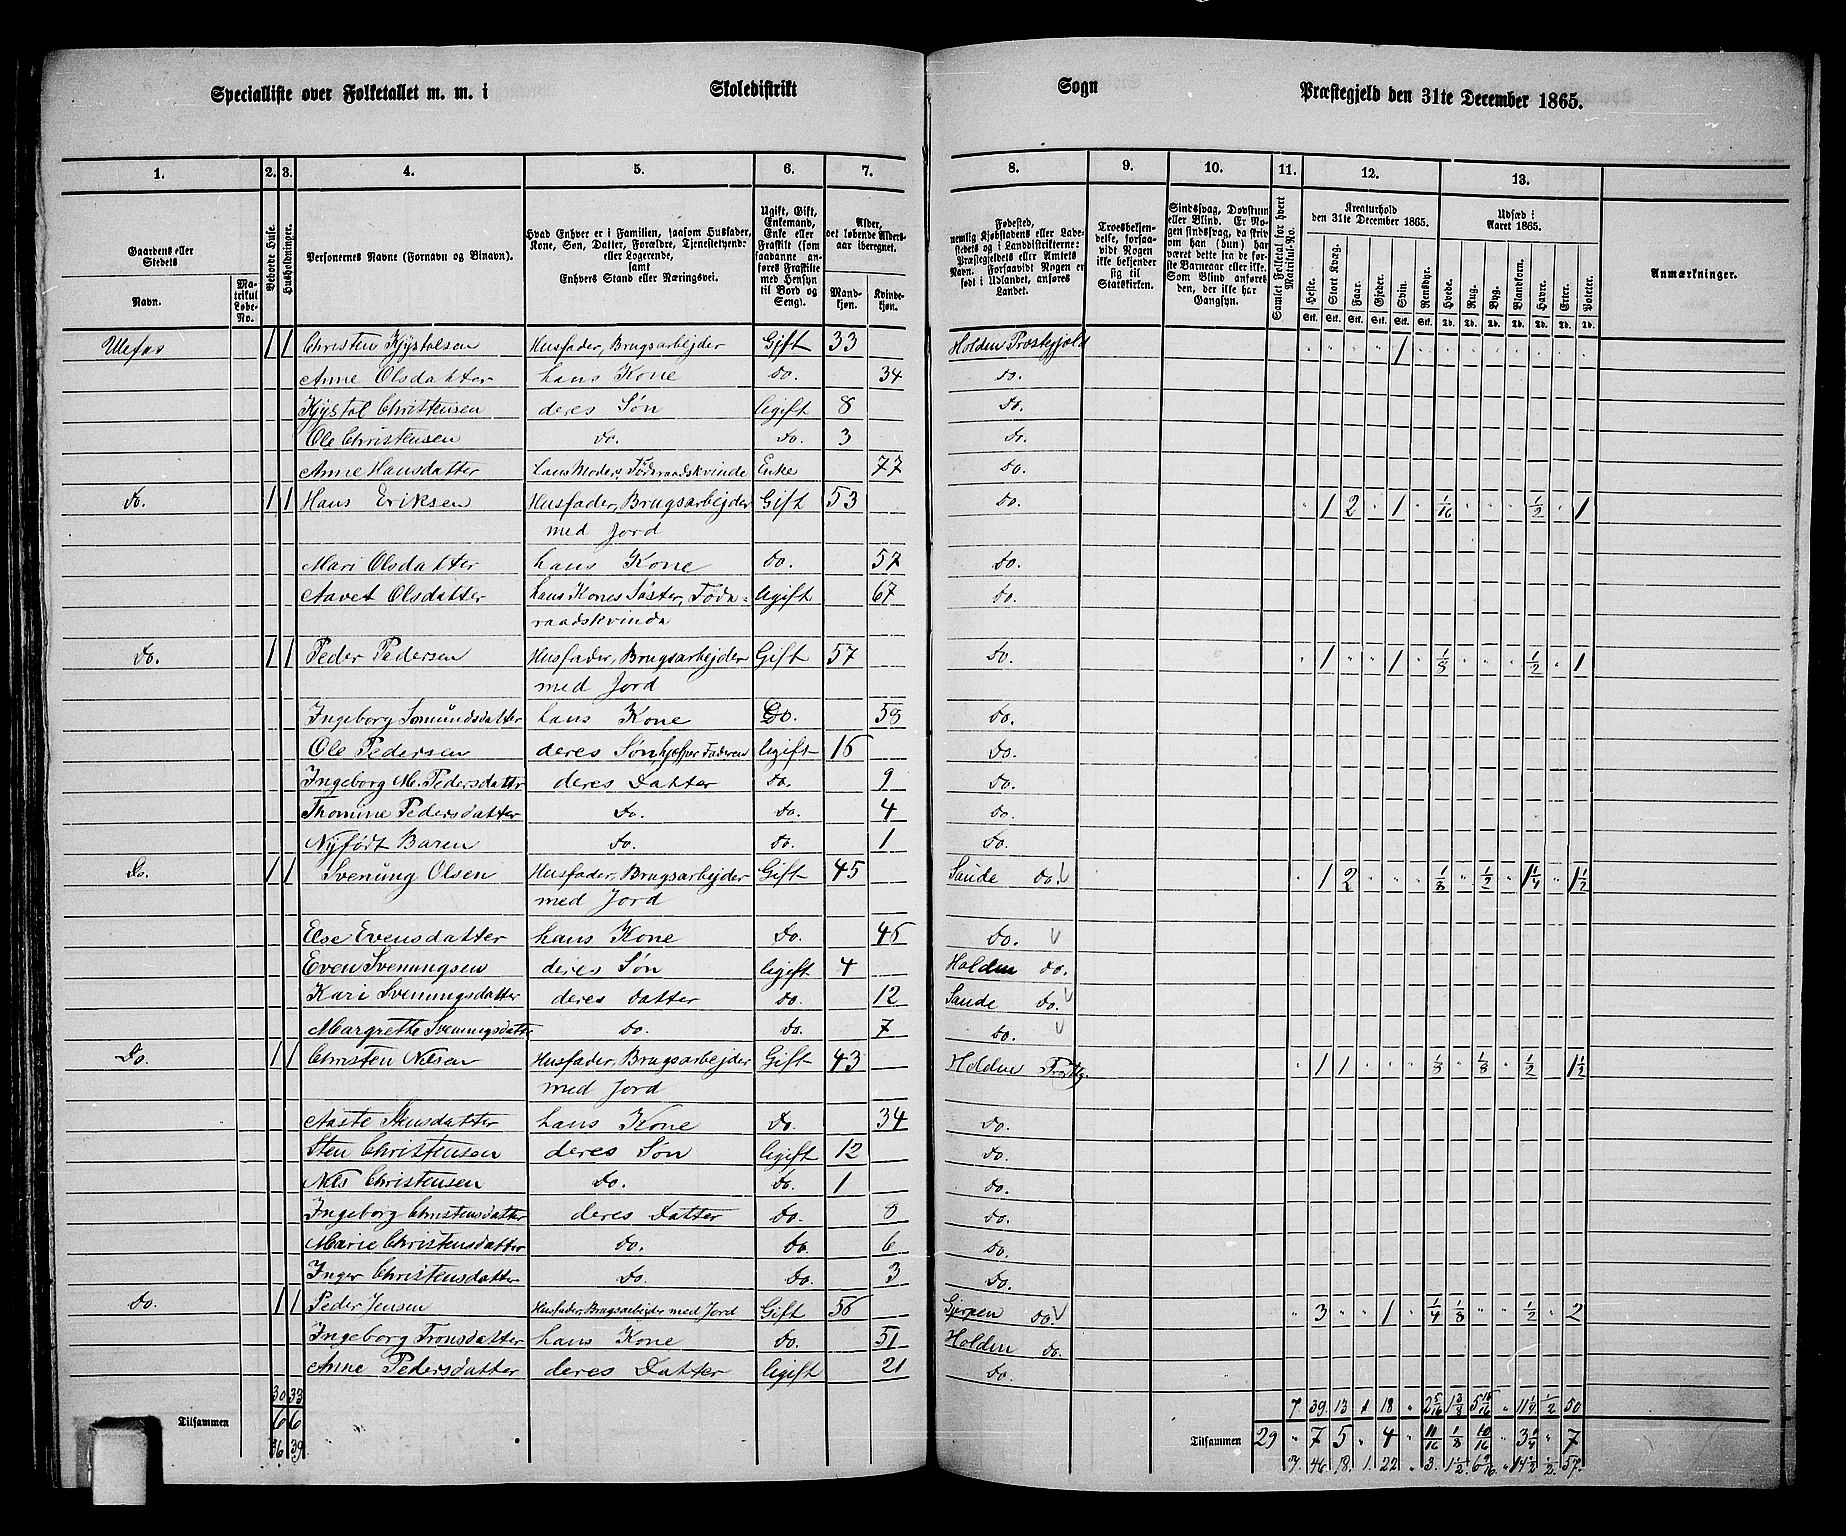 Specialliste over Folketallet m. m. i Skoledistrikt Sogn Præstegjeld den 31te December 1865.
1. 2. 3. 4. 5. 6. 7. 8. 9. 10. 11. 12. 13.
Gaardens eller Stedets
Navn.
Matrikul Løbe-No.
Beboede Huse.
Husholdninger.
Personernes Navne (Fornavn og Binavn).
Hvad Enhver er i Familien, saasom Husfader, Kone, Søn, Datter, Forældre, Tjenestetyende eller Logerende, samt Enhvers Stand eller Næringsvei.
Ugift, Gift, Enkemand, Enke eller Fraskilt (som saadanne anføres Fraskilte med Hensyn til Bord og Seng).
Alder, det løbende Alders-aar iberegnet.
Mandkjøn.
Kvindekjøn.
Fødested, nemlig Kjøbstadens eller Ladestedets og i Landdistrikterne: Præstegjeldets eller Amtets Navn. Forsaavidt Nogen er født i Udlandet, anføres Landet.
Troesbekjendelse, forsaavidt Nogen ikke bekjender sig til Statskirken.
Sindssvag, Døvstum eller Blind. Er Nogen sindssvag, da skrives om han (hun) har været dette fra de første Barneaar eller ikke. Som Blind anføres den, der ikke har Gangsyn.
Samlet Folketal for hvert Matrikul-No.
Kreaturhold den 31te December 1865.
Heste. Stort Kvæg. Faar. Gjeder. Svin. Rensdyr.
Udsæd i Aaret 1865.
Hvede. Rug. Byg. Blandkorn. Havre. Erter. Poteter.
Anmærkninger.
Ulefos 1 1 Christen Kjystolsen Husfader, Brugsarbejder Gift 33 Holden Præstegjæld 1
Anne Olsdatter hans Kone do. 34 Do.
Kjystol Christensen deres Søn Ugift 8 Do.
Ole Christensen do. do. 3 Do.
Anne Hansdatter hans Moder, Føderaadskvinde Enke 77 Do.
Do. 1 1 Hans Eriksen Husfader, Brugsarbejder Gift 53 Do. 1 2 1 1/16 1/2 1
med Jord
Mari Olsdatter hans Kone Do. 57 Do.
Aavet Olsdatter hans Kones Søster, Føde- Ugift 67 Do.
raadskvinda
Do. 1 1 Peder Pedersen Husfader, Brugsarbejder Gift 57 Do. 1 1 1/8 1/2 1
med Jord
Ingeborg Somundsdatter hans Kone Do. 58 Do.
Ole Pedersen deres Søn, hjelper Faderen Ugift 16 Do.
Ingeborg M. Pedersdatter deres Datter Do. 9 Do.
Thomine Pedersdatter Do. Do. 4 Do.
Nyfødt Baren Do. Do. 1 Do.
Do. 1 1 Svenung Olsen Husfader, Brugsarbejder Gift 45 Saude Do. 1 2 1/8 1/2 1 1/4 1 1/2
med Jord
Else Evensdatter hans Kone Do. 45 Do.
Even Svenungsen deres Søn Ugift 4 Holden Do.
Kari Svenungsdatter deres Datter Do. 12 Saude Do.
Margrethe Svenungsdatter Do. Do. 7 Do.
Do. 1 1 Christen Nilsen Husfader, Brugsarbejder Gift 43 Holden 1 1 1/8 1/8 1/2 1 1/2
med Jord
Aaste Stensdatter hans Kone Do. 34 Do.
Sten Christensen deres Søn Ugift 12 Do.
Nils Christensen Do. Do. 1 Do.
Ingeborg Christensdatter deres Datter Do. 8 Do.
Marie Christensdatter Do. Do. 6 Do.
Inger Christensdatter Do. Do. 3 Do.
Do. 1 1 Peder Jensen Husfader, Brugsarbejder med Jord Gift 56 Gjerpen Do. 3 1 1/4 1/8 1/2 2
Ingeborg Tronsdatter hans Kone Do. 51 Holden Do.
Anne Pedersdatter deres Datter Ugift 21 Do.
30 33 7. 39. 13 1 18 2 5/16 1 3/8 5 15/16 11 1/2 1/2 50
Tilsammen 6 6 Tilsammen 29 7 5 4 11/16 1/8 10/16 3 1/4 7
36 39 7. 46 18. 1. 22 3. 1 1/2. 6 9/16 14 1/2 1/2. 57.